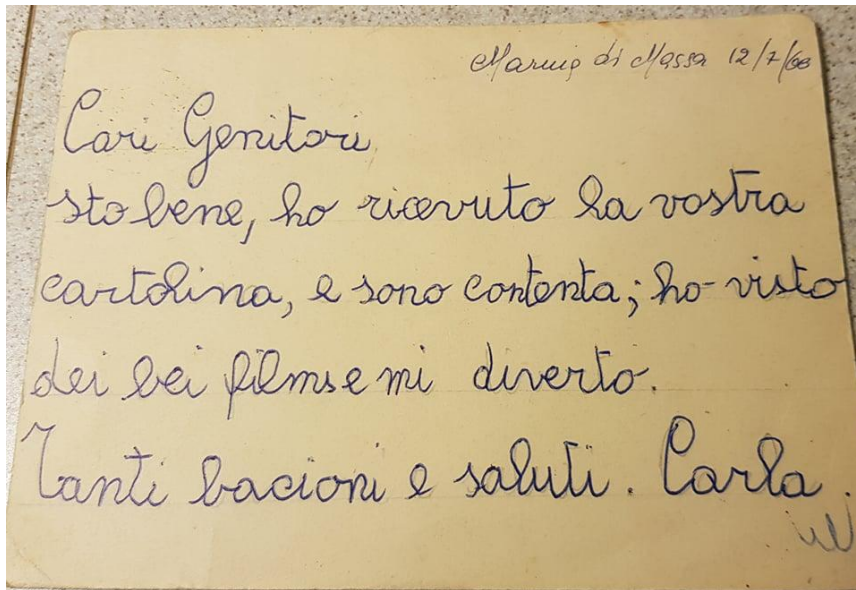 Marina di Massa 12/7/66
Cari Genitori
sto bene, ho ricevuto la vostra
cartolina, e sono contenta; ho visto
dei bei films e mi diverto.
Tanti bacioni e saluti. Carla.